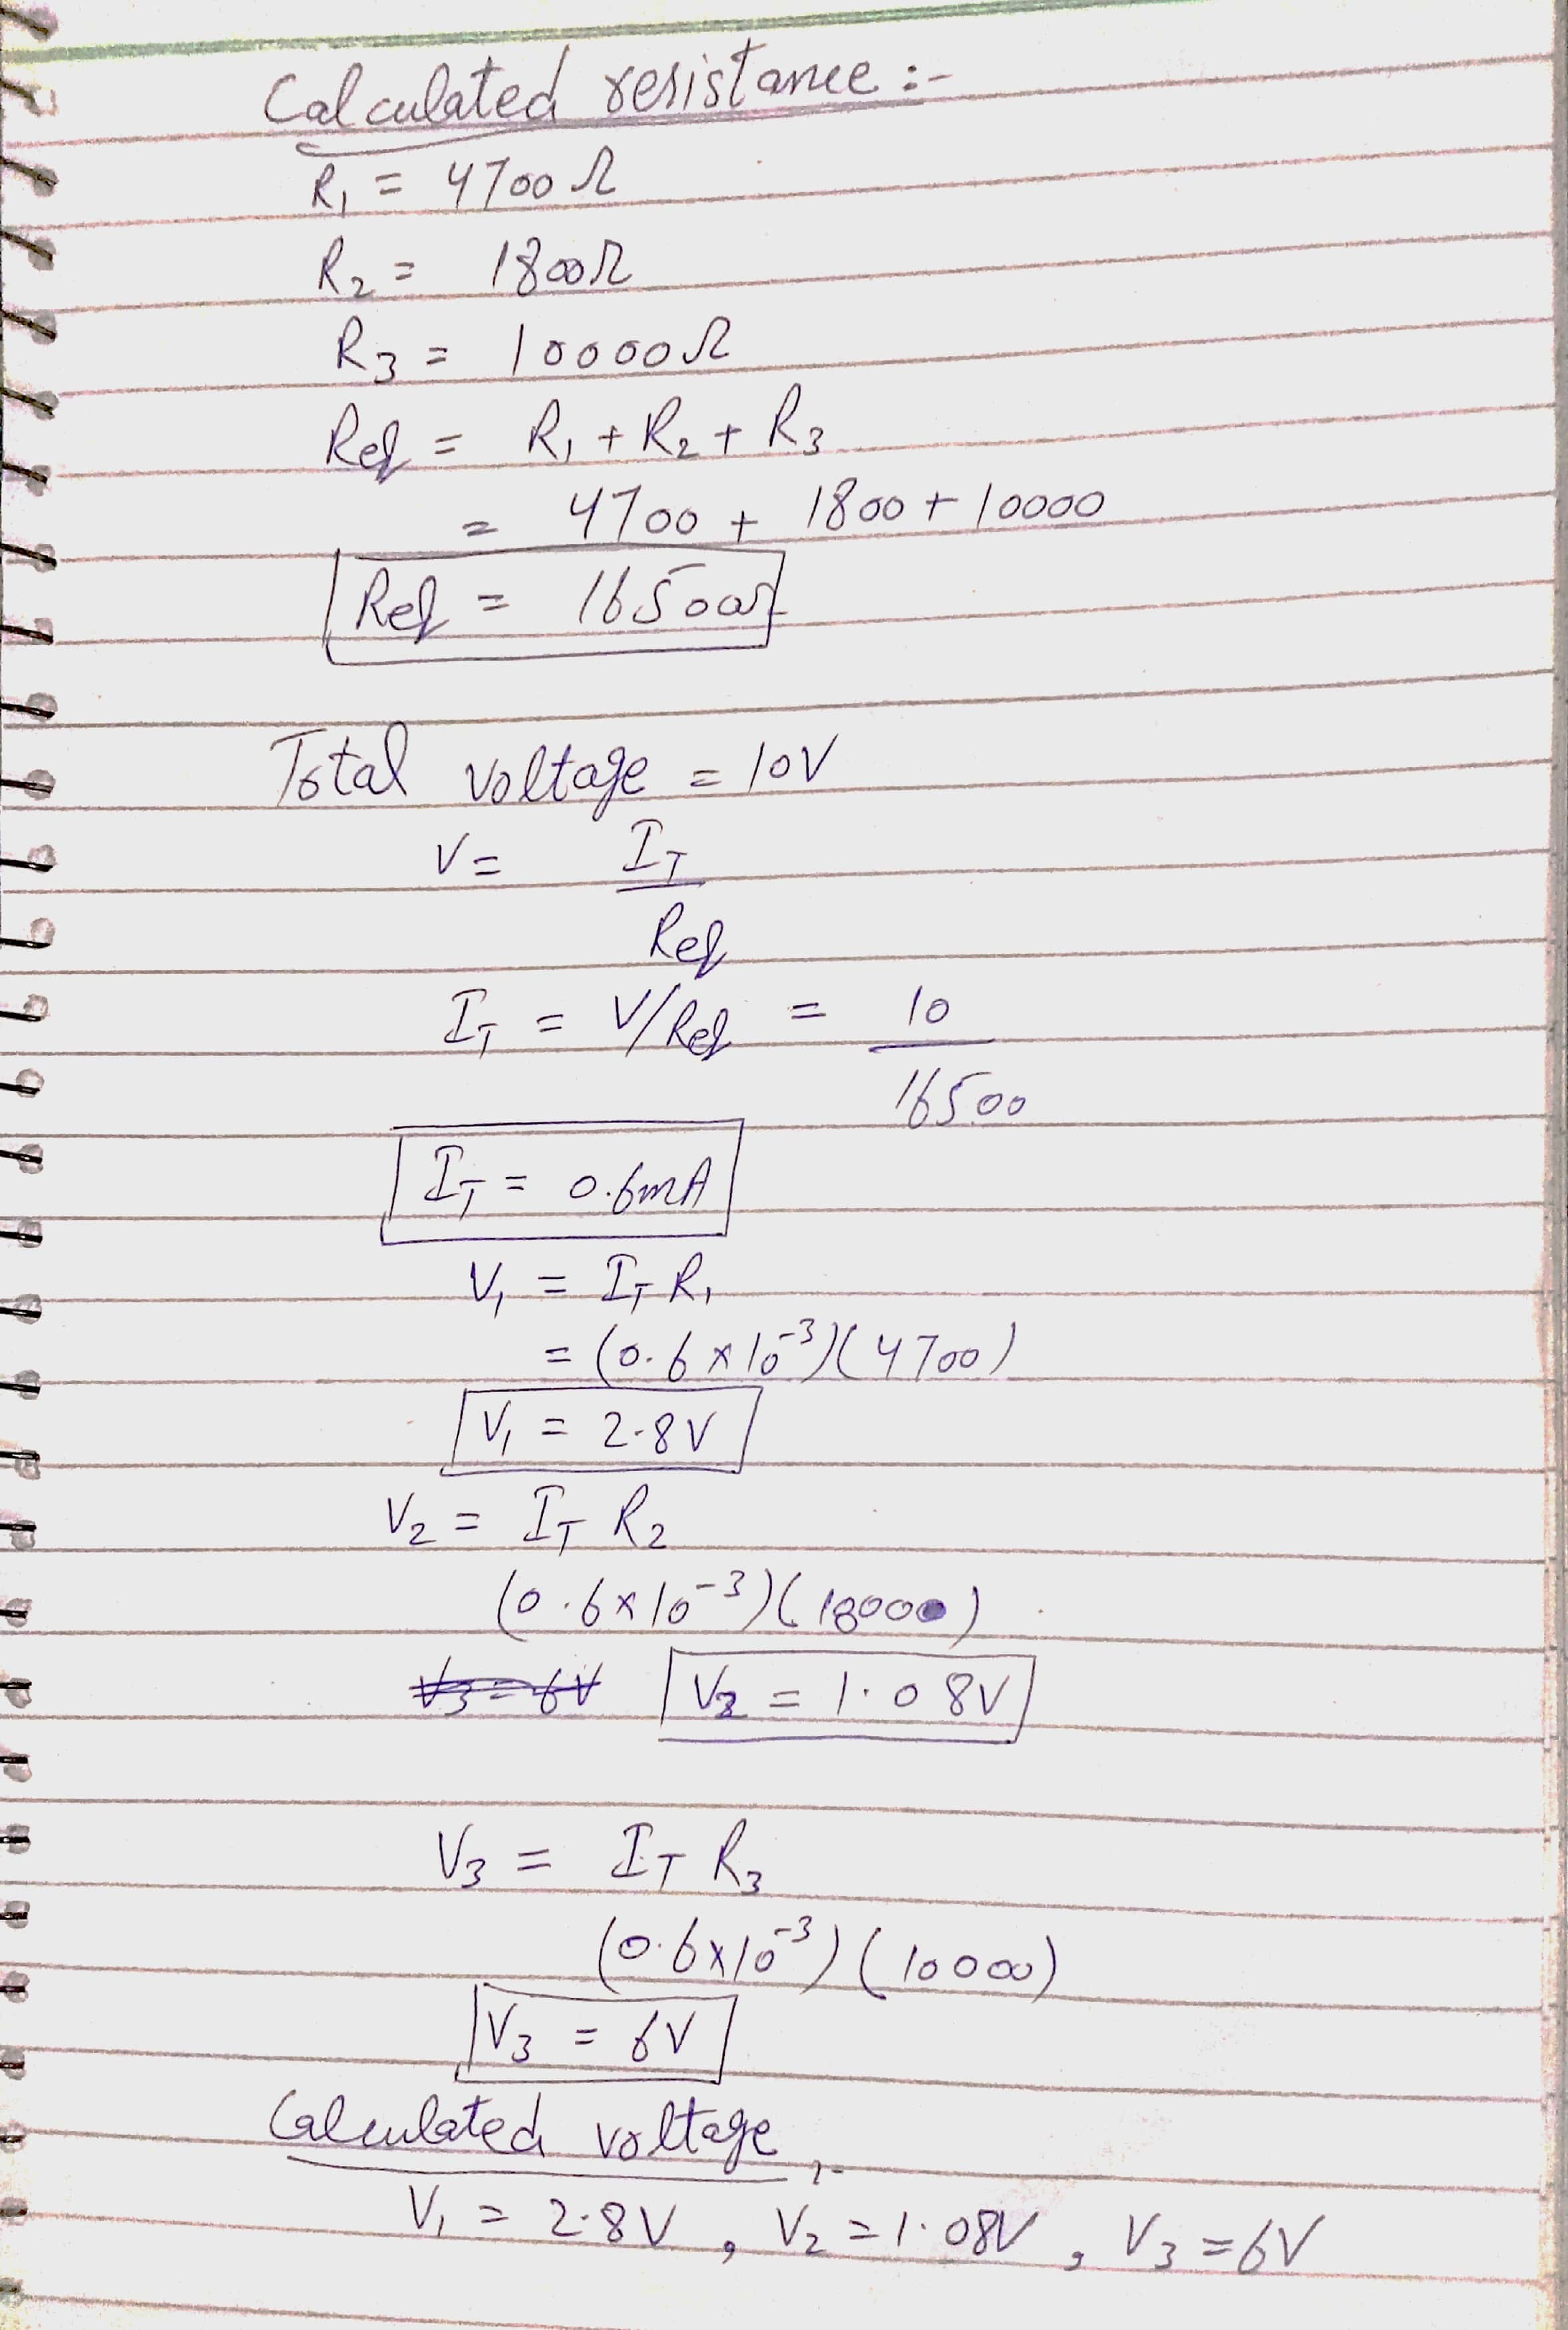 Calculated resistance :-
R₁ = 4700 Ω
R₂ = 1800Ω
R₃ = 10000Ω
Req = R₁ + R₂ + R₃
= 4700 + 1800 + 10000
Req = 16500Ω
Total voltage = 10V
V = I_T / Req
I_T = V/Req = 10 / 16500
I_T = 0.6mA
V₁ = I_T R₁
= (0.6 × 10⁻³)(4700)
V₁ = 2.8V
V₂ = I_T R₂
(0.6 × 10⁻³)(1800)
V₃ = 6V V₂ = 1.08V
V₃ = I_T R₃
(0.6×10⁻³) (10000)
V₃ = 6V
Calculated voltage :-
V₁ = 2.8V , V₂ = 1.08V , V₃ = 6V